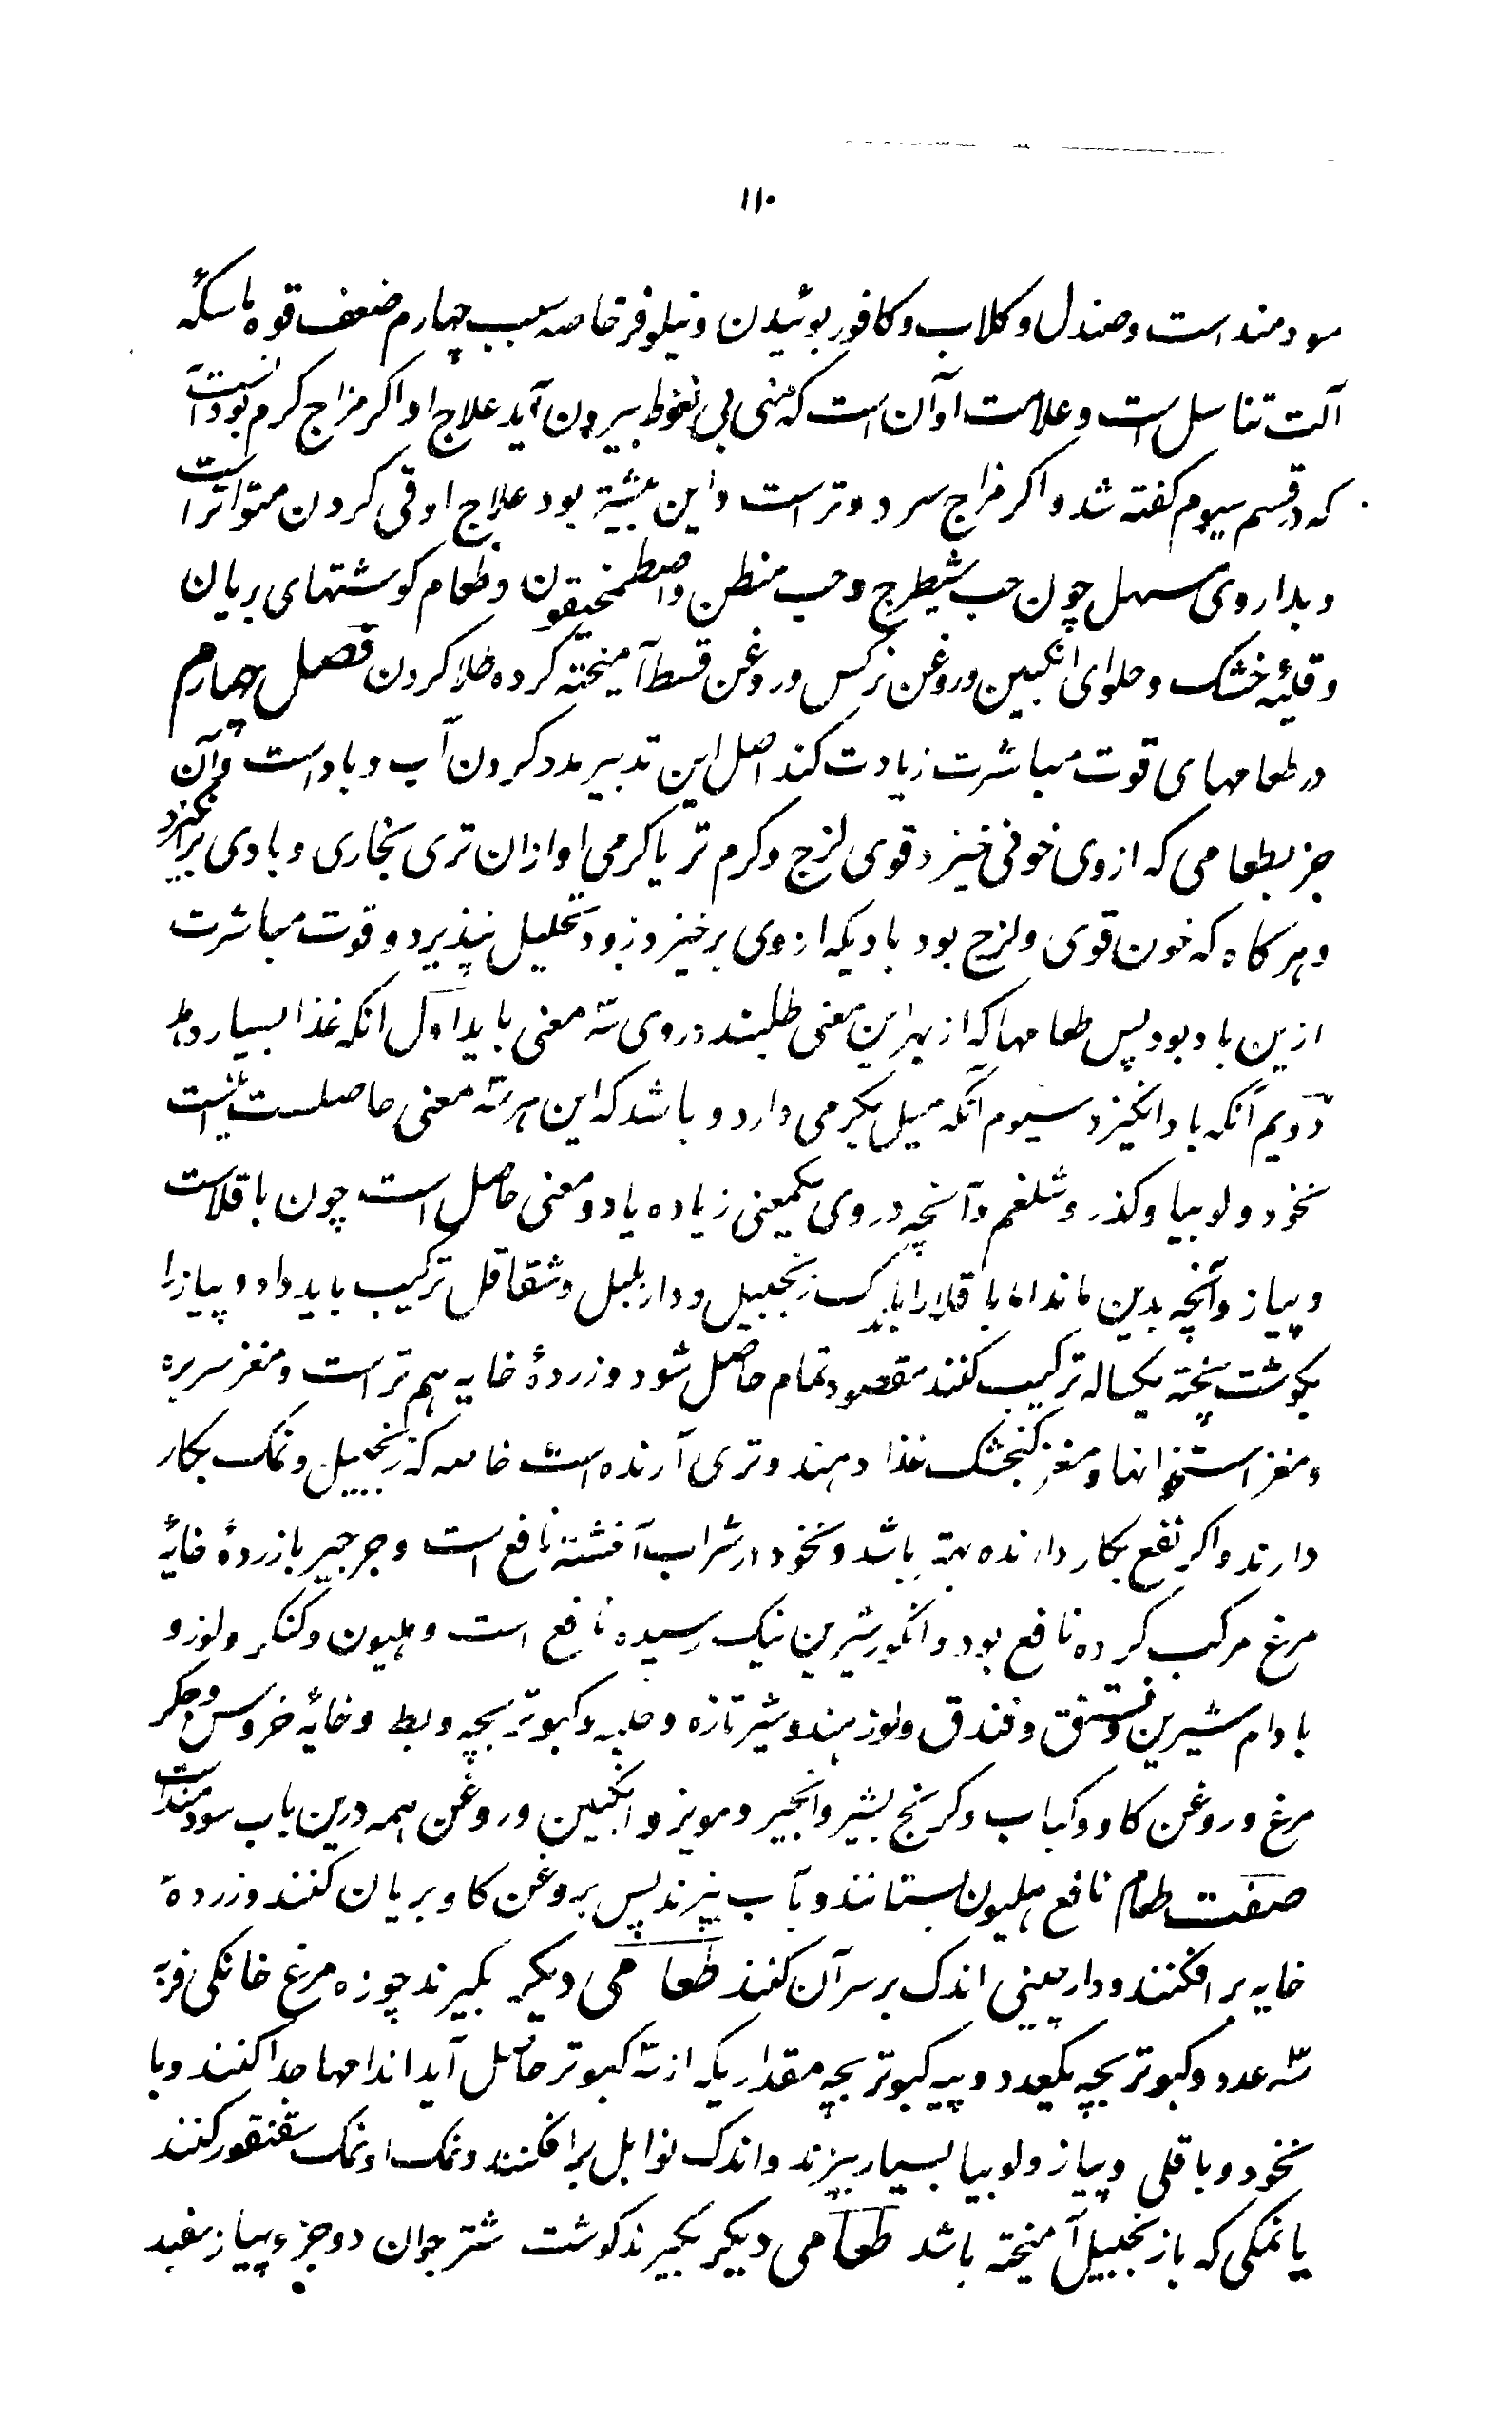 ۱۱۰
سودمند است و صندل و کلاب و کافور بوئیدن و نیلوفر خاصه سبب چهارم ضعف قوه ماسکهٔ
آلت تناسل است و علامت او آن است که منی بی نغوظ بیرون آید علاج او اکر مزاج کرم بود آنست
که در قسم سیوم کفته شد و اکر مزاج سرد و تر است و این بیشتر بود علاج او قی کردن متواتر است
و بداروی مسهل چون حب شیطرج و حب منطن و اصطمخیقون و طعام کوشتهای بریان
و قلیهٔ خشک و حلوای انکبین و روغن نرکس و روغن قسط آمیخته کرده طلا کردن فصل چهارم
در طعامهای قوت مباشرت زیادت کند اصل این تدبیر مدد کردن آب و باد است و آن
جز بطعامی که از وی خونی خیزد قوی لزج و کرم تر یا کرمی او از ان تری بخاری و بادی برانکیزد
و هر کاه که خون قوی و لزج بود بادیکه از وی برخیزد زود تحلیل نپذیرد و قوت مباشرت
ازین باد بود پس طعامها که از بهر این معنی طلبند در وی سه معنی باید اول انکه غذا بسیار دهد
دویم آنکه باد انکیزد سیوم آنکه میل بکرمی دارد و باشد که این هر سه معنی حاصلست
نخود و لوبیا و کذر و شلغم و آنچه در وی یکمعنی زیاده یا دو معنی حاصل است چون باقلاست
و پیاز و آنچه بدین ماند اما باقلا را با زنجبیل و دار بلبل و شقاقل ترکیب باید داد و پیاز را
بکوشت پخته یکساله ترکیب کنند مقصود تمام حاصل شود و زردهٔ خایه هم تر است و مغز سر بره
و مغز استخوانها و مغز کنجشک غذا دهند و تری آرنده است خاصه که زنجبیل و نمک بکار
دارند و اکر نفع بکار دارنده بهتر باشد و نخود در شراب آغشته نافع است و جرجیر با زردهٔ خایهٔ
مرغ مرکب کرده نافع بود و انکور شیرین نیک رسیده نافع است و هلیون و کنکر و لوز و
بادام شیرین و فستق و فندق و لوز هند و شیر تازه و حلبه و کبوتر بچه و بط و خایهٔ خروس و جکر
مرغ و روغن کاو و کباب و کرنج بشیر و انجیر و مویز و انکبین و روغن همه درین باب سودمند است
صفت طعام نافع هلیون بستانند و بآب بپزند پس بروغن کاو بریان کنند و زردهٔ
خایه بر افکنند و دارچینی اندک بر سر آن کنند طعامی دیکر بکیرند چوزه مرغ خانکی فربه
سه عدد و کبوتر بچه یکعدد و پیه کبوتر بچه مقداریکه از سه کبوتر حاصل آید اندامها جدا کنند و با
نخود و باقلی و پیاز و لوبیا بسیار بپزند و اندک توابل بر افکنند و نمک او نمک سقنقور کنند
یا نمکی که با زنجبیل آمیخته باشد طعامی دیکر بکیرند کوشت شتر جوان دو جزء و پیاز سفید